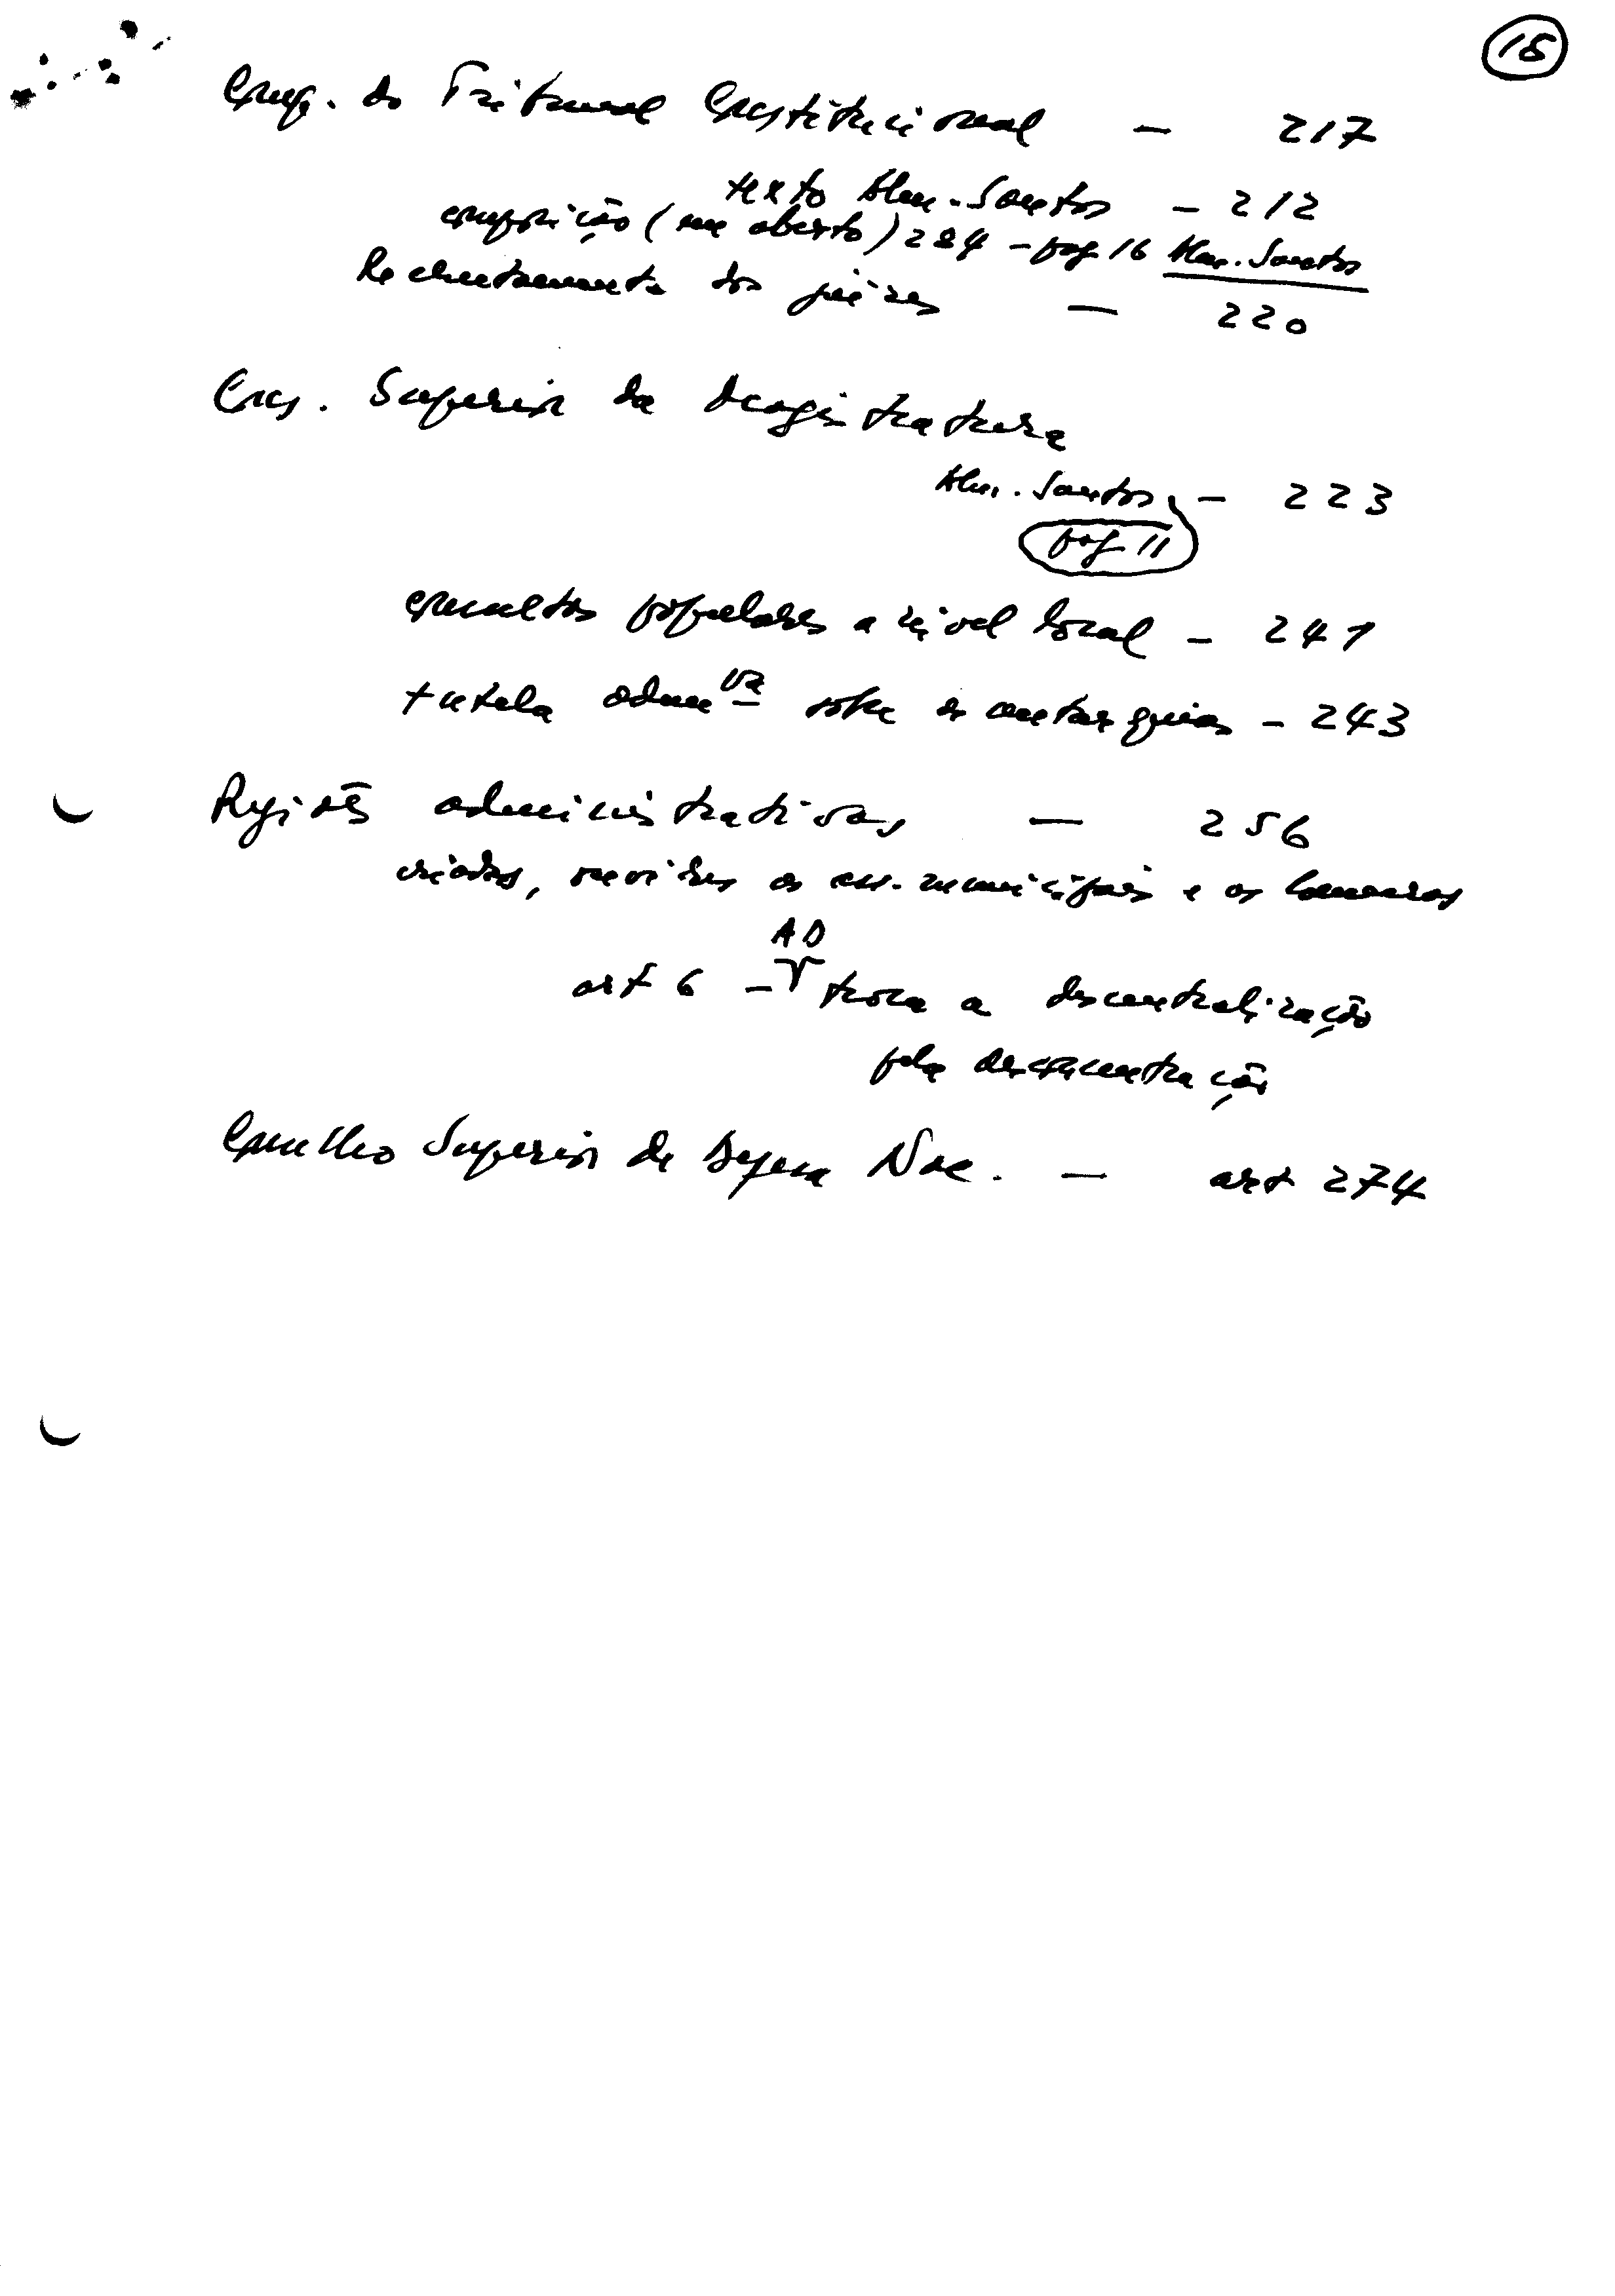 18
Comp. do Tribunal Constitucional — 217
texto Alm. Santos — 212
composição (em aberto) 284 — pag 16 Alm. Santos
Recrutamento dos juízes — 220
Cons. Superior da Magistratura
Alm. Santos — 223
pag 11
consultas populares a nível local — 241
tutela admva sobre as autarquias — 243
Regiões administrativas — 256
criadas, ouvidas as ass. municipais e as Camaras
AD
art 6 — troca a descentralização
pela desconcentração
Conselho Superior de Defesa Nac. — art 274